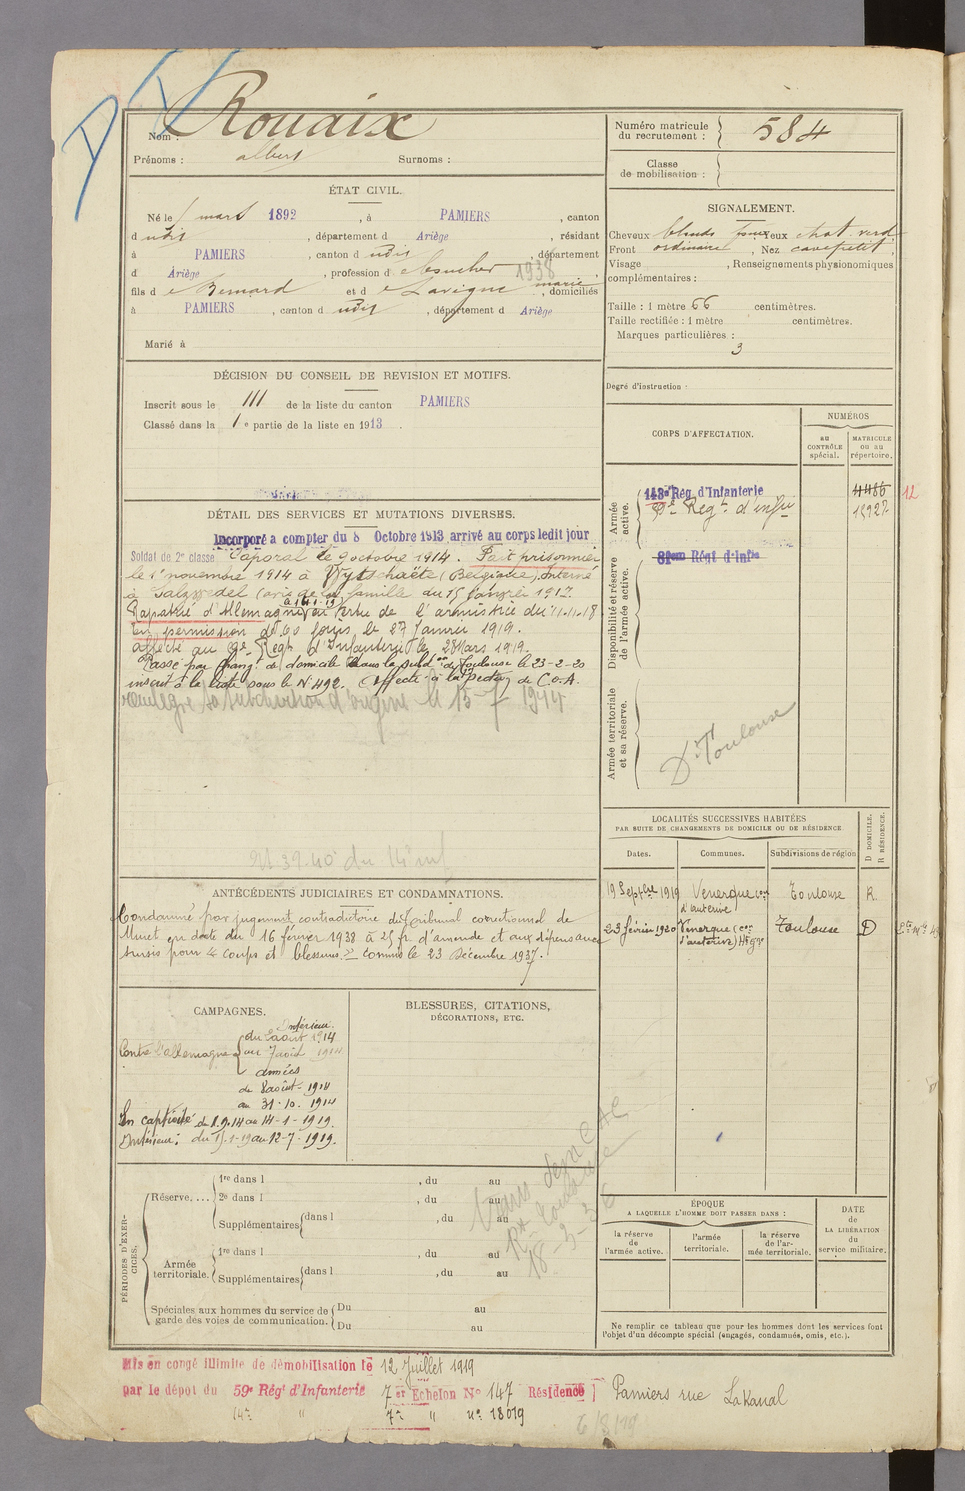 Nom : Rouaix
Prénoms : albert Surnoms :
Numéro matricule du recrutement : 584
Classe de mobilisation :
ÉTAT CIVIL.
Né le 1 mars 1892 , à PAMIERS , canton
d udit , département d Ariège , résidant
à PAMIERS , canton d udit , département
d Ariège , profession d e boucher 1938
fils d e Bernard et d e Lavigne marie , domiciliés
à PAMIERS , canton d udit , département d Ariège
Marié à
SIGNALEMENT.
Cheveux blonds Yeux chat. verd
Front ordinaire , Nez cave petit ;
Visage , Renseignements physionomiques
complémentaires :
Taille : 1 mètre 66 centimètres.
Taille rectifiée : 1 mètre centimètres.
Marques particulières :
3
Degré d'instruction :
DÉCISION DU CONSEIL DE REVISION ET MOTIFS.
Inscrit sous le 111 de la liste du canton PAMIERS
Classé dans la 1e partie de la liste en 1913 .
DÉTAIL DES SERVICES ET MUTATIONS DIVERSES.
Incorporé a compter du 8 Octobre 1913 arrivé au corps ledit jour
Soldat de 2e classe Caporal le 9 octobre 1914. Fait prisonnier
le 1er novembre 1914 à Wytschaëte (Belgique) Interné
à Salzwedel (avis de la famille du 15 janvier 1917
Rapatrié d'Allemagne en vertu de l'armistice du 11.11.18
En permission de 60 jours le 27 Janvier 1919.
affecté au 9e Regt d'Infanterie le 28 Mars 1919.
Passé par changt de domicile dans la subdon de Toulouse le 23-2-20
inscrit à la liste sous le N° 492. Affecté à la
sa subdivision d'origine le 15-7-1944
ANTÉCÉDENTS JUDICIAIRES ET CONDAMNATIONS.
Condamné par jugement contradictoire du Tribunal correctionnel de
Muret en date du 16 février 1938 à 25 fr d'amende et aux dépens avec
sursis pour "coups et blessures." Commis le 23 Décembre 1937.
CAMPAGNES.
Intérieur.
Contre l'allemagne du 2 août 1914
au 7 août 1914
armées
du 8 août - 1914
au 31-10. 1914
En captivité du 1.9.14 au 14-1-1919.
Intérieur : du 15.1-19 au 12-7-1919.
BLESSURES, CITATIONS,
DÉCORATIONS, ETC.
CORPS D'AFFECTATION.
NUMÉROS
au CONTRÔLE spécial.
MATRICULE ou au répertoire.
Armée active.
143e Rég d'Infanterie 4486 12
9e Regt d'infie 15927
Disponibilité et réserve de l'armée active.
81eme Régt d'Infie
Armée territoriale et sa réserve.
Dt Toulouse
LOCALITÉS SUCCESSIVES HABITÉES
PAR SUITE DE CHANGEMENTS DE DOMICILE OU DE RÉSIDENCE
Dates. Communes. Subdivisions de région D DOMICILE. R RÉSIDENCE.
19 Septbre 1919 Venerque con d'auterive Toulouse R.
23 février 1920 Venerque (con d'auterive) Hte Gne Toulouse D
PÉRIODES D'EXERCICES.
Réserve.... 1re dans l , du au
2e dans l , du au
Supplémentaires dans l , du au
Armée territoriale. 1re dans l , du au
Supplémentaires dans l , du au
Spéciales aux hommes du service de garde des voies de communication. Du au
Du au
18-3-36
ÉPOQUE
A LAQUELLE L'HOMME DOIT PASSER DANS :
la réserve de l'armée active.
l'armée territoriale.
la réserve de l'armée territoriale.
DATE de LA LIBÉRATION du service militaire.
Ne remplir ce tableau que pour les hommes dont les services font
l'objet d'un décompte spécial (engagés, condamnés, omis, etc.).
Mis en congé illimité de démobilisation le 12 Juillet 1919
par le dépôt du 59e Rég' d'Infanterie 7er Echelon No 147 Résidence Pamiers rue Lakanal
14e " 7e " no 18019
6/8/19